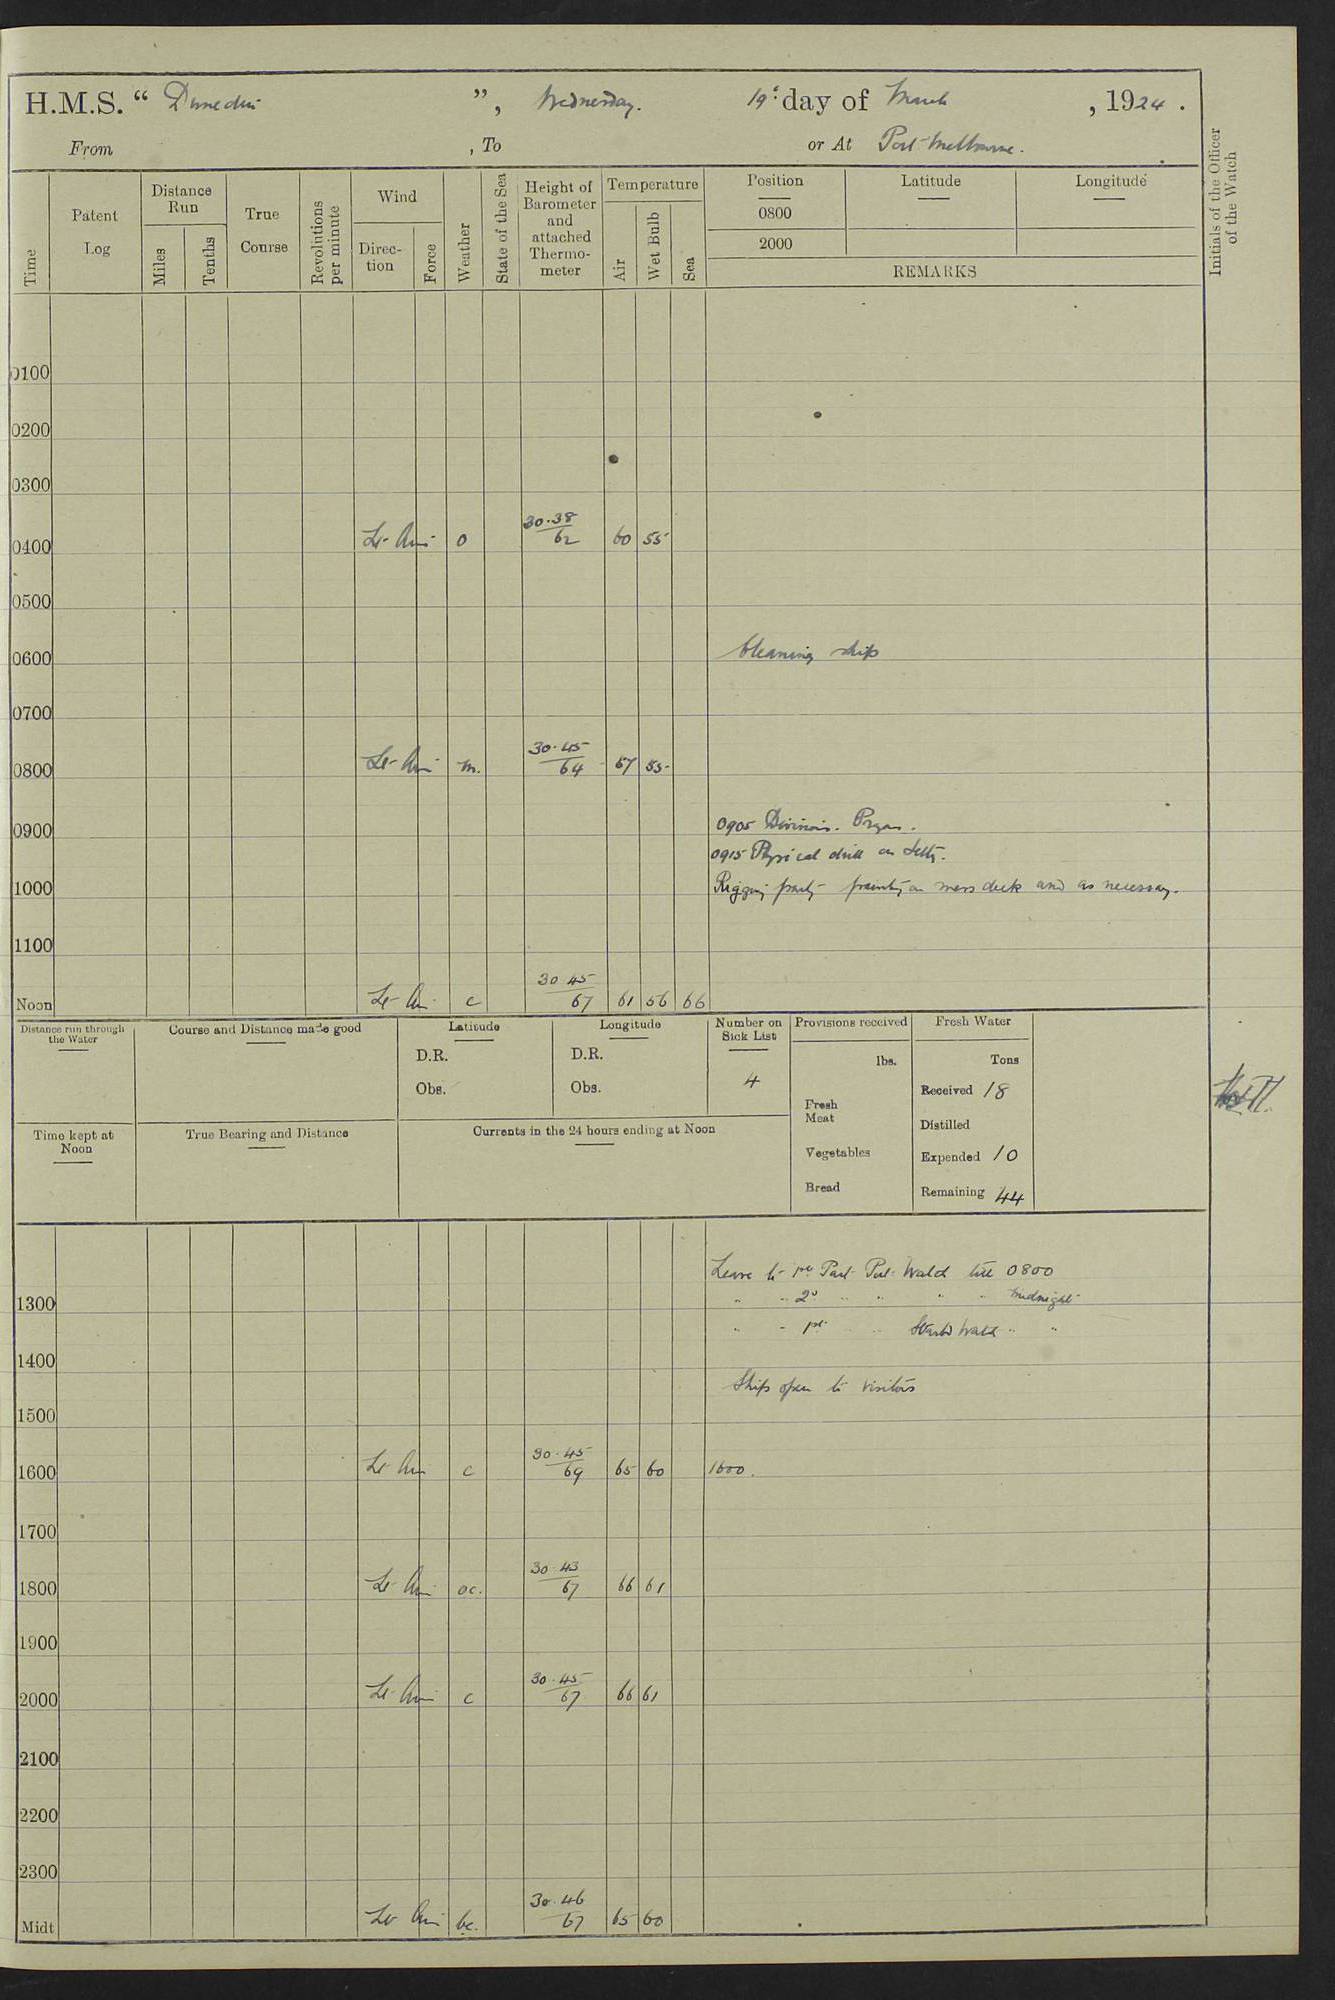 H.M.S. “ Dunedin ”, Wednesday. 19th day of March , 1924 .
From , To or At Port Melbourne.
Time
Patent Log
Distance Run
Miles
Tenths
True Course
Revolutions per minute
Wind
Direction
Force
Weather
State of the Sea
Height of Barometer and attached Thermometer
Temperature
Air
Wet Bulb
Sea
Position
0800
2000
Latitude
Longitude
REMARKS
Initials of the Officer of the Watch
0100
0200
0300
0400 Lt Airs o 30.38/62 60 55
0500
0600 Cleaning ship
0700
0800 Lt Airs m. 30.45/64 57 55
0900 0905 Divisions. Prayers.
0915 Physical drill on Jetty.
1000 Rigging party painting on mess deck and as necessary.
1100
Noon Lt Airs c 30.45/67 61 56 66
Distance run through the Water
Course and Distance made good
Latitude
D.R.
Obs.
Longitude
D.R.
Obs.
Number on Sick List
4
Provisions received
lbs.
Fresh Meat
Vegetables
Bread
Fresh Water
Tons
Received 18
Distilled
Expended 10
Remaining 44
Time kept at Noon
True Bearing and Distance
Currents in the 24 hours ending at Noon
Leave to 1st Part Port Watch till 0800
1300 " " 2nd " " " " Midnight
" " 1st " Starbd Watch " "
1400
Ship open to visitors
1500
1600 Lt Airs c 30.45/69 65 60 1600.
1700
1800 Lt Airs oc. 30.43/67 66 61
1900
2000 Lt Airs c 30.45/67 66 61
2100
2200
2300
Midt Lt Airs bc. 30.46/67 65 60